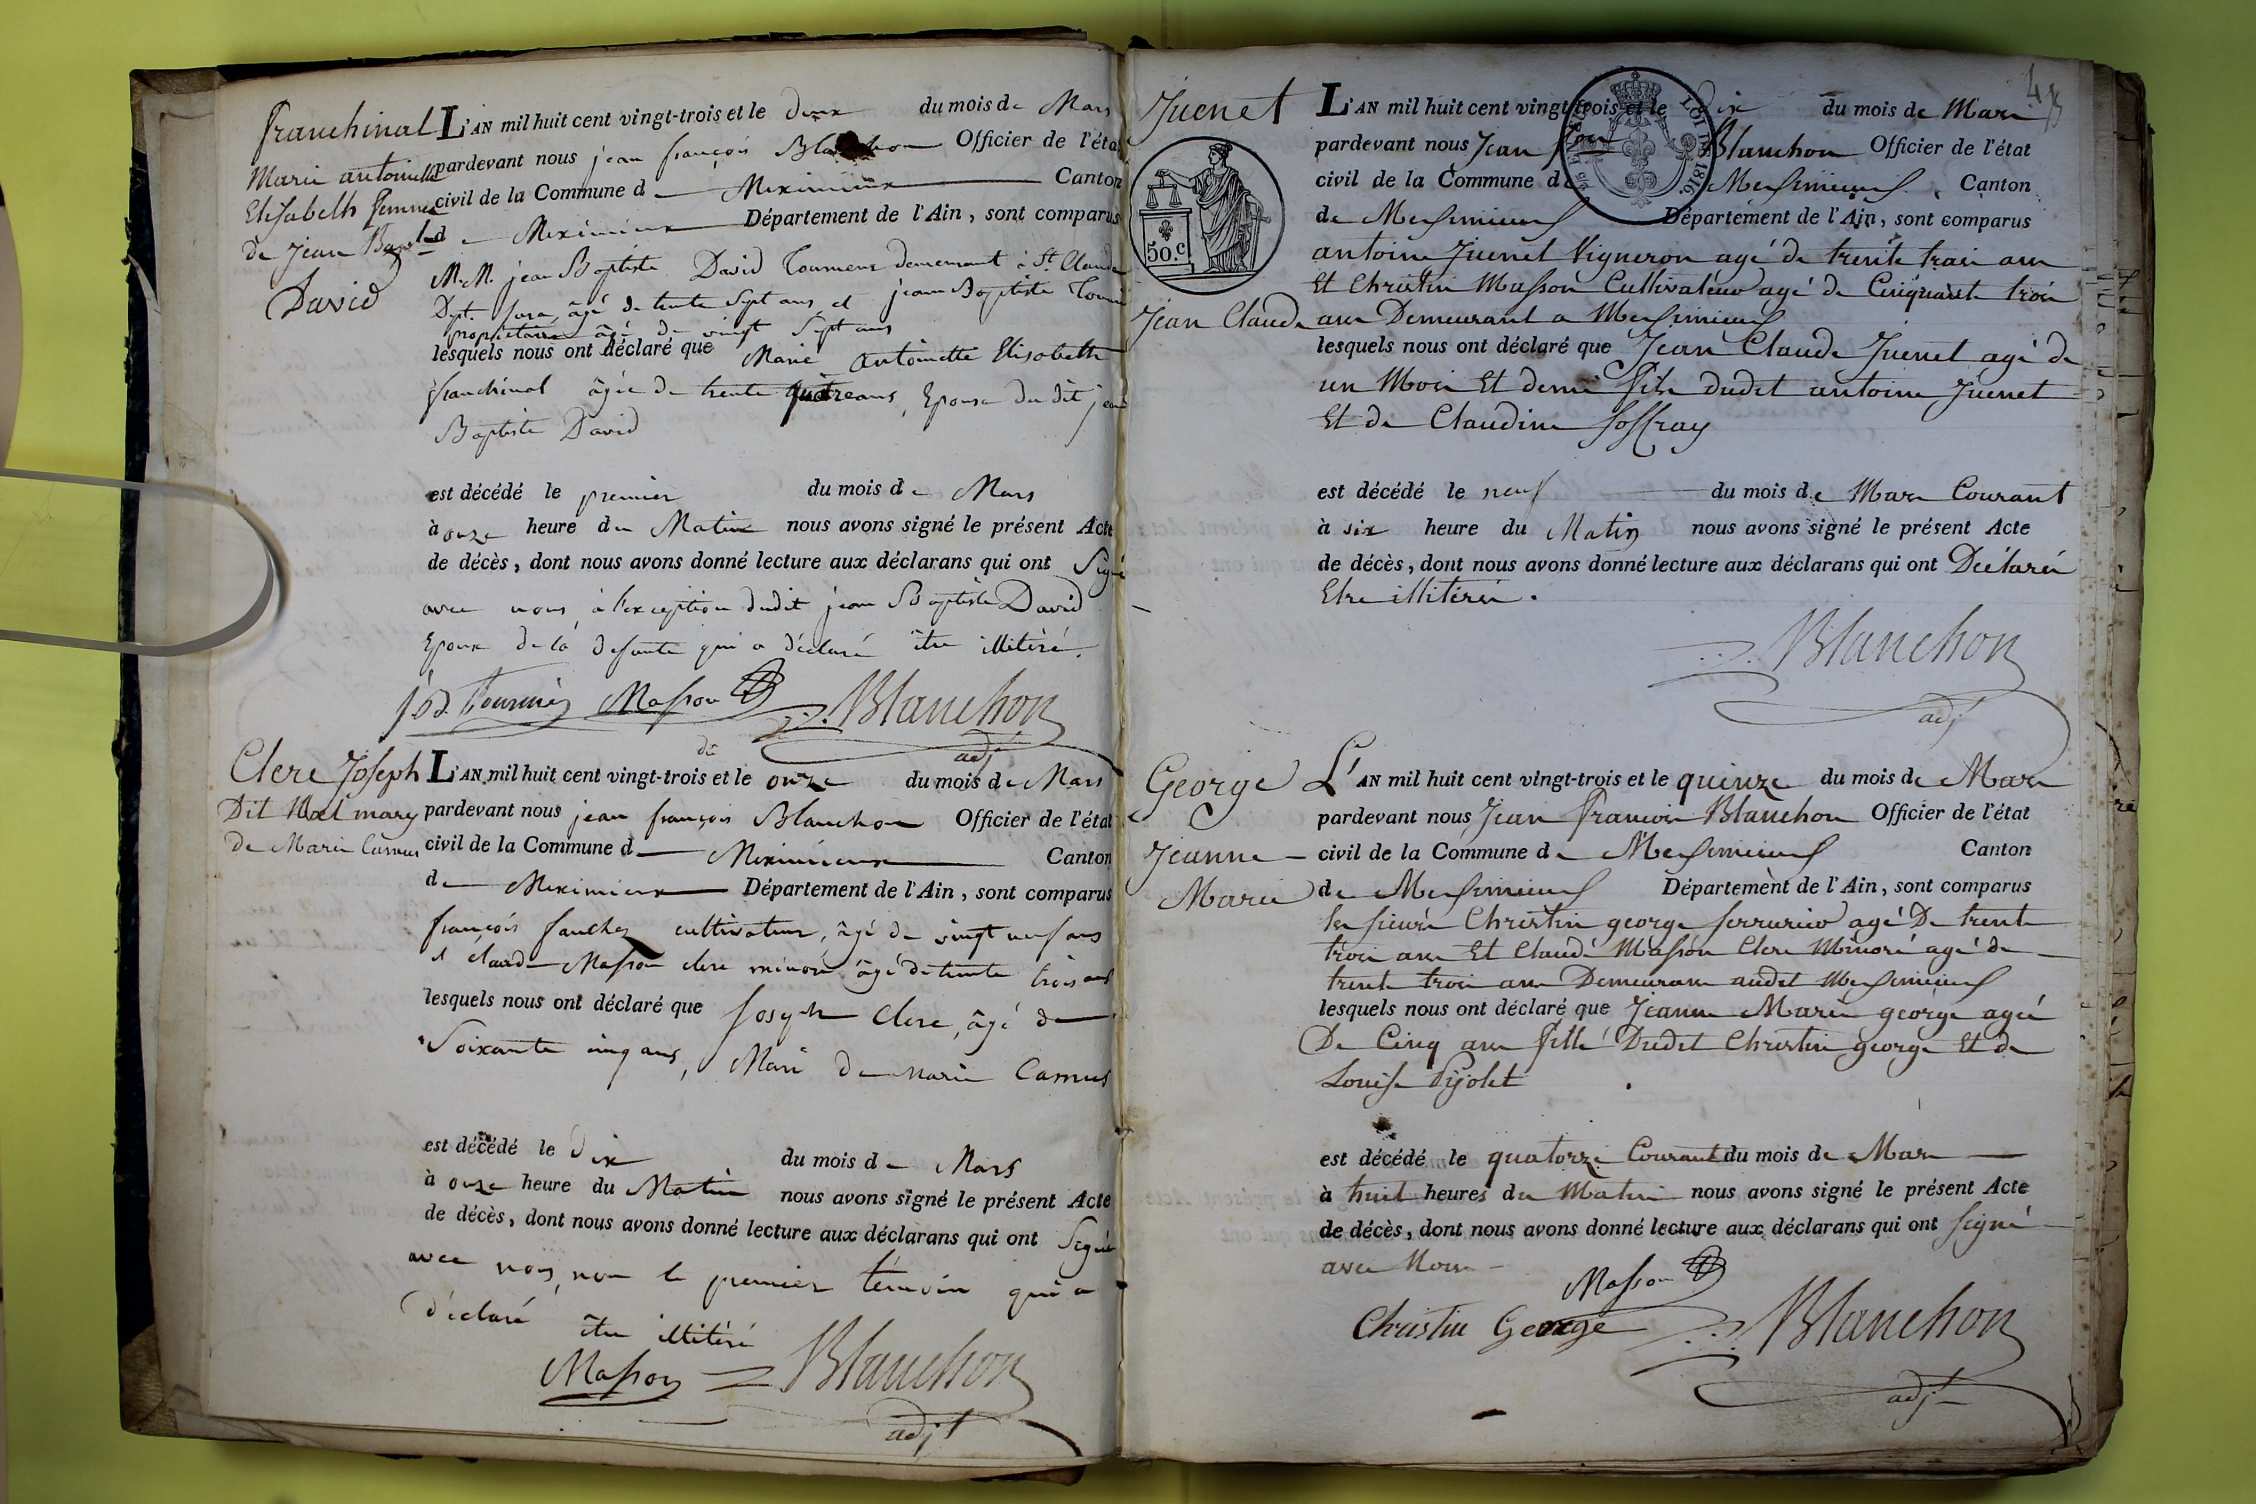 Franchinal
Marie antoinette
Elisabeth femme
de Jean Bapt.
David
L'AN mil huit cent vingt-trois et le deux du mois de Mars
pardevant nous jean françois Blanchon Officier de l'état
civil de la Commune d Meximieux Canton
de Meximieux Département de l'Ain, sont comparus
M.M. jean Baptiste David Tourneur demeurant à St. Claude
Dept. Jura, âgé de trente sept ans et jean Baptiste
propriétaire âgé de vingt sept ans
lesquels nous ont déclaré que Marie Antoinette Elisabeth
franchinal âgée de trente quatre ans, Epouse du dit jean
Baptiste David
est décédé le premier du mois de Mars
à onze heure du Matin nous avons signé le présent Acte
de décès, dont nous avons donné lecture aux déclarans qui ont Signé
avec nous, à l'exception dudit jean Baptiste David
Epoux de la defunte qui a déclaré être illitéré.
Masson Blanchon
adjt
Clerc Joseph
Dit mary
de Marie Camus
L'AN mil huit cent vingt-trois et le onze du mois de Mars
pardevant nous jean françois Blanchon Officier de l'état
civil de la Commune d Meximieux Canton
de Meximieux Département de l'Ain, sont comparus
françois cultivateur, âgé de vingt neuf ans
et claude Masson clerc minoré âgé de trente trois ans
lesquels nous ont déclaré que Joseph Clerc, âgé de
Soixante cinq ans, Mari de Marie Camus
est décédé le Dix du mois de Mars
à onze heure du Matin nous avons signé le présent Acte
de décès, dont nous avons donné lecture aux déclarans qui ont Signé
avec nous, non le premier témoin qui a
déclaré être illitéré
Masson Blanchon
adjt
Juenet
50.c
Jean Claude
LOI DE 1816.
L'AN mil huit cent vingt-trois et le Dix du mois de Mars
pardevant nous Jean Blanchon Officier de l'état
civil de la Commune de Messimieux Canton
de Messimieux Département de l'Ain, sont comparus
antoine Juenet Vigneron agé de trente trois ans
Et Christin Masson Cultivateur agé de Cinquante trois
ans Demeurant a Messimieux
lesquels nous ont déclaré que Jean Claude Juenet agé de
un Mois Et demi fils dudit antoine Juenet
Et de Claudine Joffray
est décédé le neuf du mois de Mars Courant
à six heure du Matin nous avons signé le présent Acte
de décès, dont nous avons donné lecture aux déclarans qui ont Déclarés
Etre illitérés.
Blanchon
adjt
George
Jeanne
Marie
L'AN mil huit cent vingt-trois et le quinze du mois de Mars
pardevant nous Jean francois Blanchon Officier de l'état
civil de la Commune de Messimieux Canton
de Messimieux Département de l'Ain, sont comparus
les sieurs Christin george serrurier agé De trente
trois ans Et Claude Masson Clerc Minoré agé de
trente trois ans Demeurans audit Messimieux
lesquels nous ont déclaré que Jeanne Marie george agée
De Cinq ans fille Dudit Christin george Et de
Louise Pijolet
est décédé le quatorze Courant du mois de Mars
à huit heures du Matin nous avons signé le présent Acte
de décès, dont nous avons donné lecture aux déclarans qui ont Signé
avec Nous
Masson
Christin George Blanchon
adjt